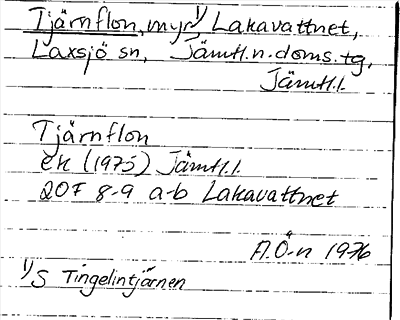 Tjärnflon, myr 1/ Lakavattnet,
Laxsjö sn, Jämtl.n.doms.tg,
Jämtl.l.
Tjärnflon
ek (1975) Jämtl.l.
20F 8-9 a-b Lakavattnet
A.Ö-n 1976
1/ S Tingelintjärnen